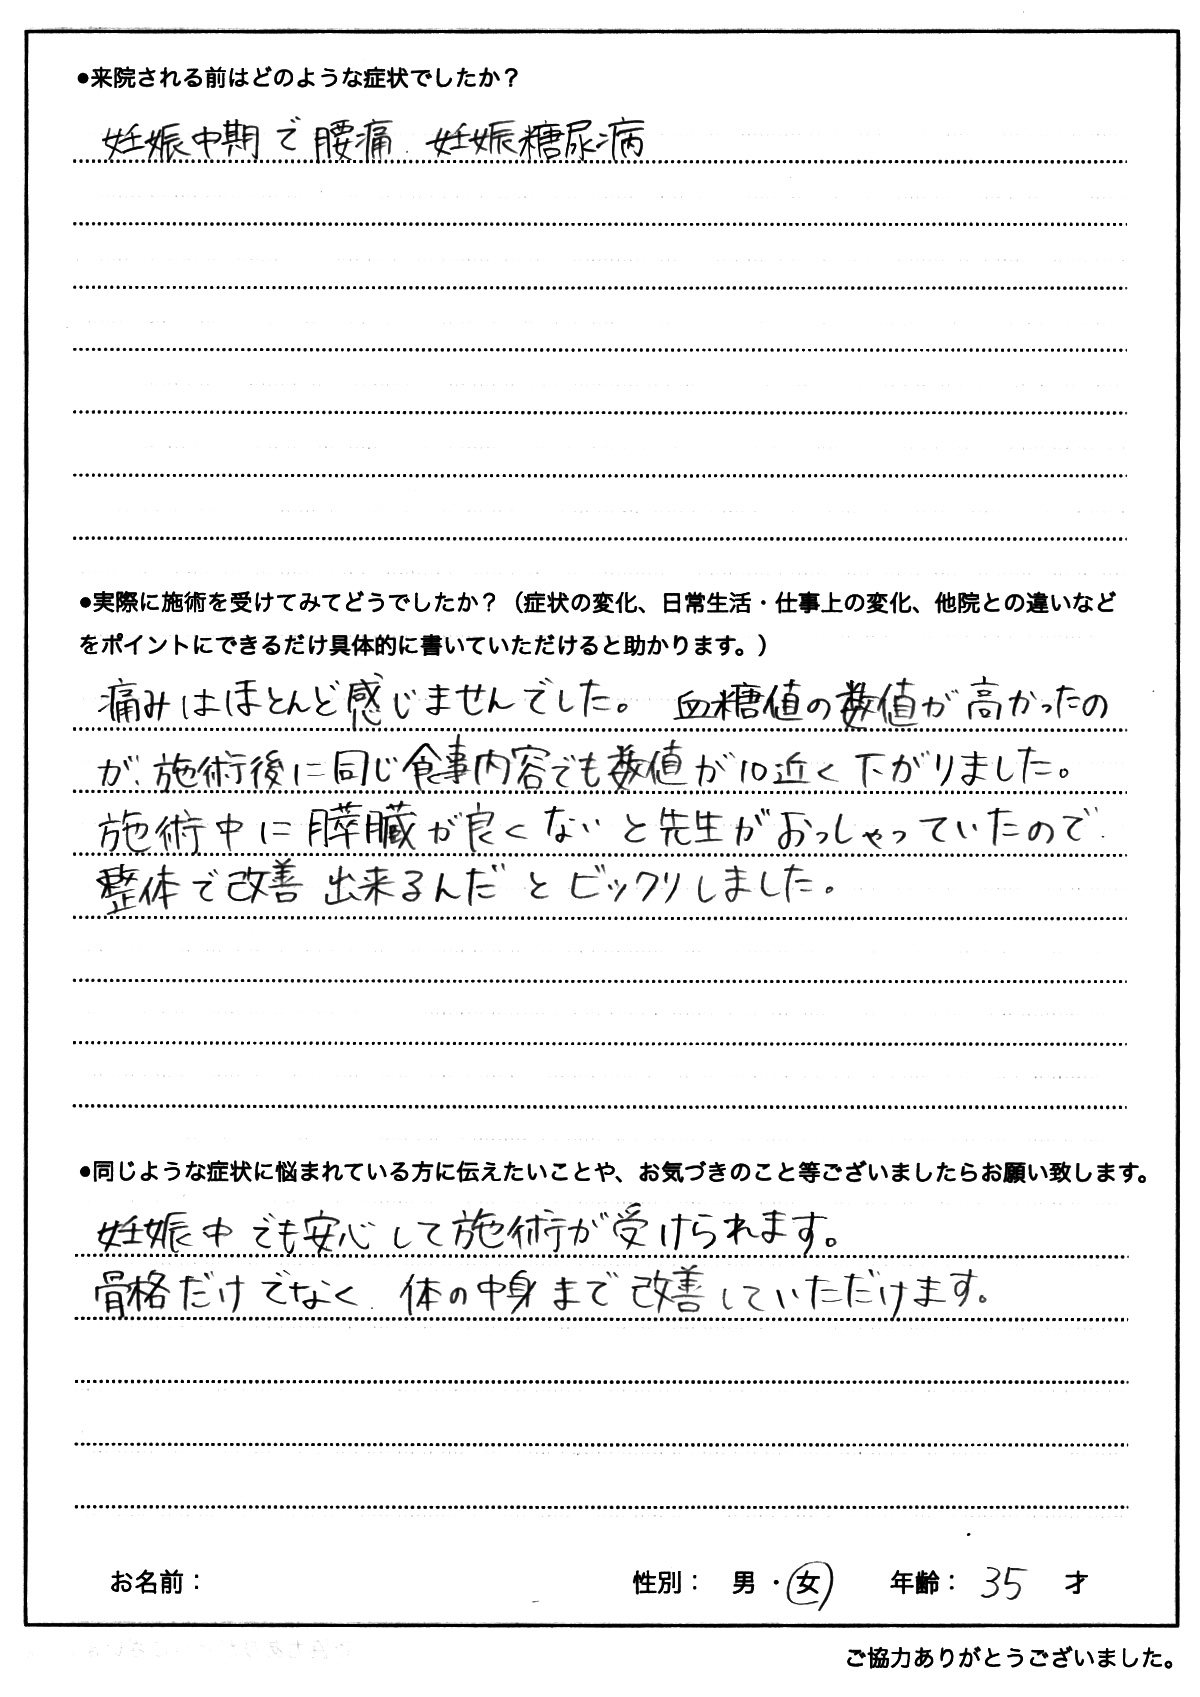 ●来院される前はどのような症状でしたか？
妊娠中期で腰痛、妊娠糖尿病
●実際に施術を受けてみてどうでしたか？（症状の変化、日常生活・仕事上の変化、他院との違いなど
をポイントにできるだけ具体的に書いていただけると助かります。）
痛みはほとんど感じませんでした。血糖値の数値が高かったの
が、施術後に同じ食事内容でも数値が10近く下がりました。
施術中に膵臓が良くないと先生がおっしゃっていたので、
整体で改善出来るんだとビックリしました。
●同じような症状に悩まれている方に伝えたいことや、お気づきのこと等ございましたらお願い致します。
妊娠中でも安心して施術が受けられます。
骨格だけでなく、体の中身まで改善していただけます。
お名前： 性別： 男・女 年齢： 35 才
ご協力ありがとうございました。